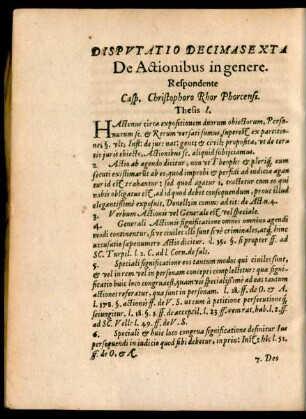 DISPVTATIO DECIMASEXTA
De Actionibus in genere.
Respondente
Casp. Christophoro Rhor Phorcensi.
Thesis I.
HActenus circa expositionem duorum obiectorum, Perso-
narum sc. & Rerum versati sumus, superest ex partitio-
ne §. ult; Inst: de jur: nat: gent: & civili: proposita, vt de ter-
tio juris obiecto, Actionibus sc. aliquid subjiciamus.
2. Actio ab agendo dicitur, non vt Theoph: & pleriq; eum
secuti existimarūt ab eo, quod improbi & perfidi ad iudicia agan-
tur id est trahantur; sed quod agatur i. noctetur cum eo qui
nobis obligatus est id quod debet consequendum, prout illud
elegantissimè exposuit, Donellus in comm: ad tit: de Act n. 4.
3. Verbum Actionis vel Generale est vel speciale.
4. Generali Actionis significatione omnes omnino agendi
modi continentur, sive civiles illi sint sive criminales, atq; hinc
accusatio saepenumero Actio dicitur. l. 15. §. propter ff. ad
SC. Turpil. l. 2. C. ad l. Corn. de fals.
5. Speciali significatione eos tantum modos qui civiles sunt,
& vel in rem vel in personam concepti complectitur: quæ signifi-
catio huic loco congruit, quamvis specialissimè ad eas tantum
actiones referatur, quæ sunt in personam. l. 28. ff. de O. & A.
l. 178. §. actionis ff. de V. S. ut cum à petitione persecutioneq;
seiungitur, l. 18. §. 1. ff. de accepil. l. 23. ff. rem rat. hab. l. 2. ff.
ad SC. Vell: l. 49. ff. de V. S.
6. Speciali & huic loco congrua significatione definitur Ius
persequendi in iudicio quod sibi debetur, in prin: Inst: h: l. 51.
ff. de O. & A.
7. Deo